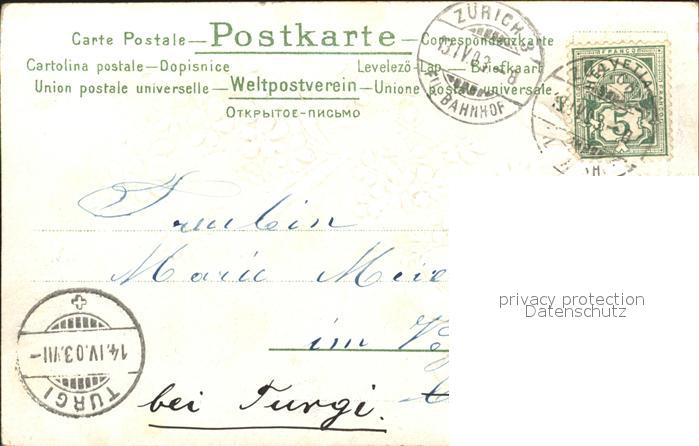 Carte Postale— Postkarte —Correspondenzkarte
Cartolina postale—Dopisnice Levelező-Lap—Briefkaart
Union postale universelle—Weltpostverein—Unione postale universale
ОТКРЫТОЕ-ПИСЬМО
ZÜRICH
13.IV.03.-8
BAHNHOF
FRANCO
HELVETIA
5
Fräulein
Marie Meie
im
bei Turgi.
14.IV.03.VII-
TURGI
privacy protection
Datenschutz